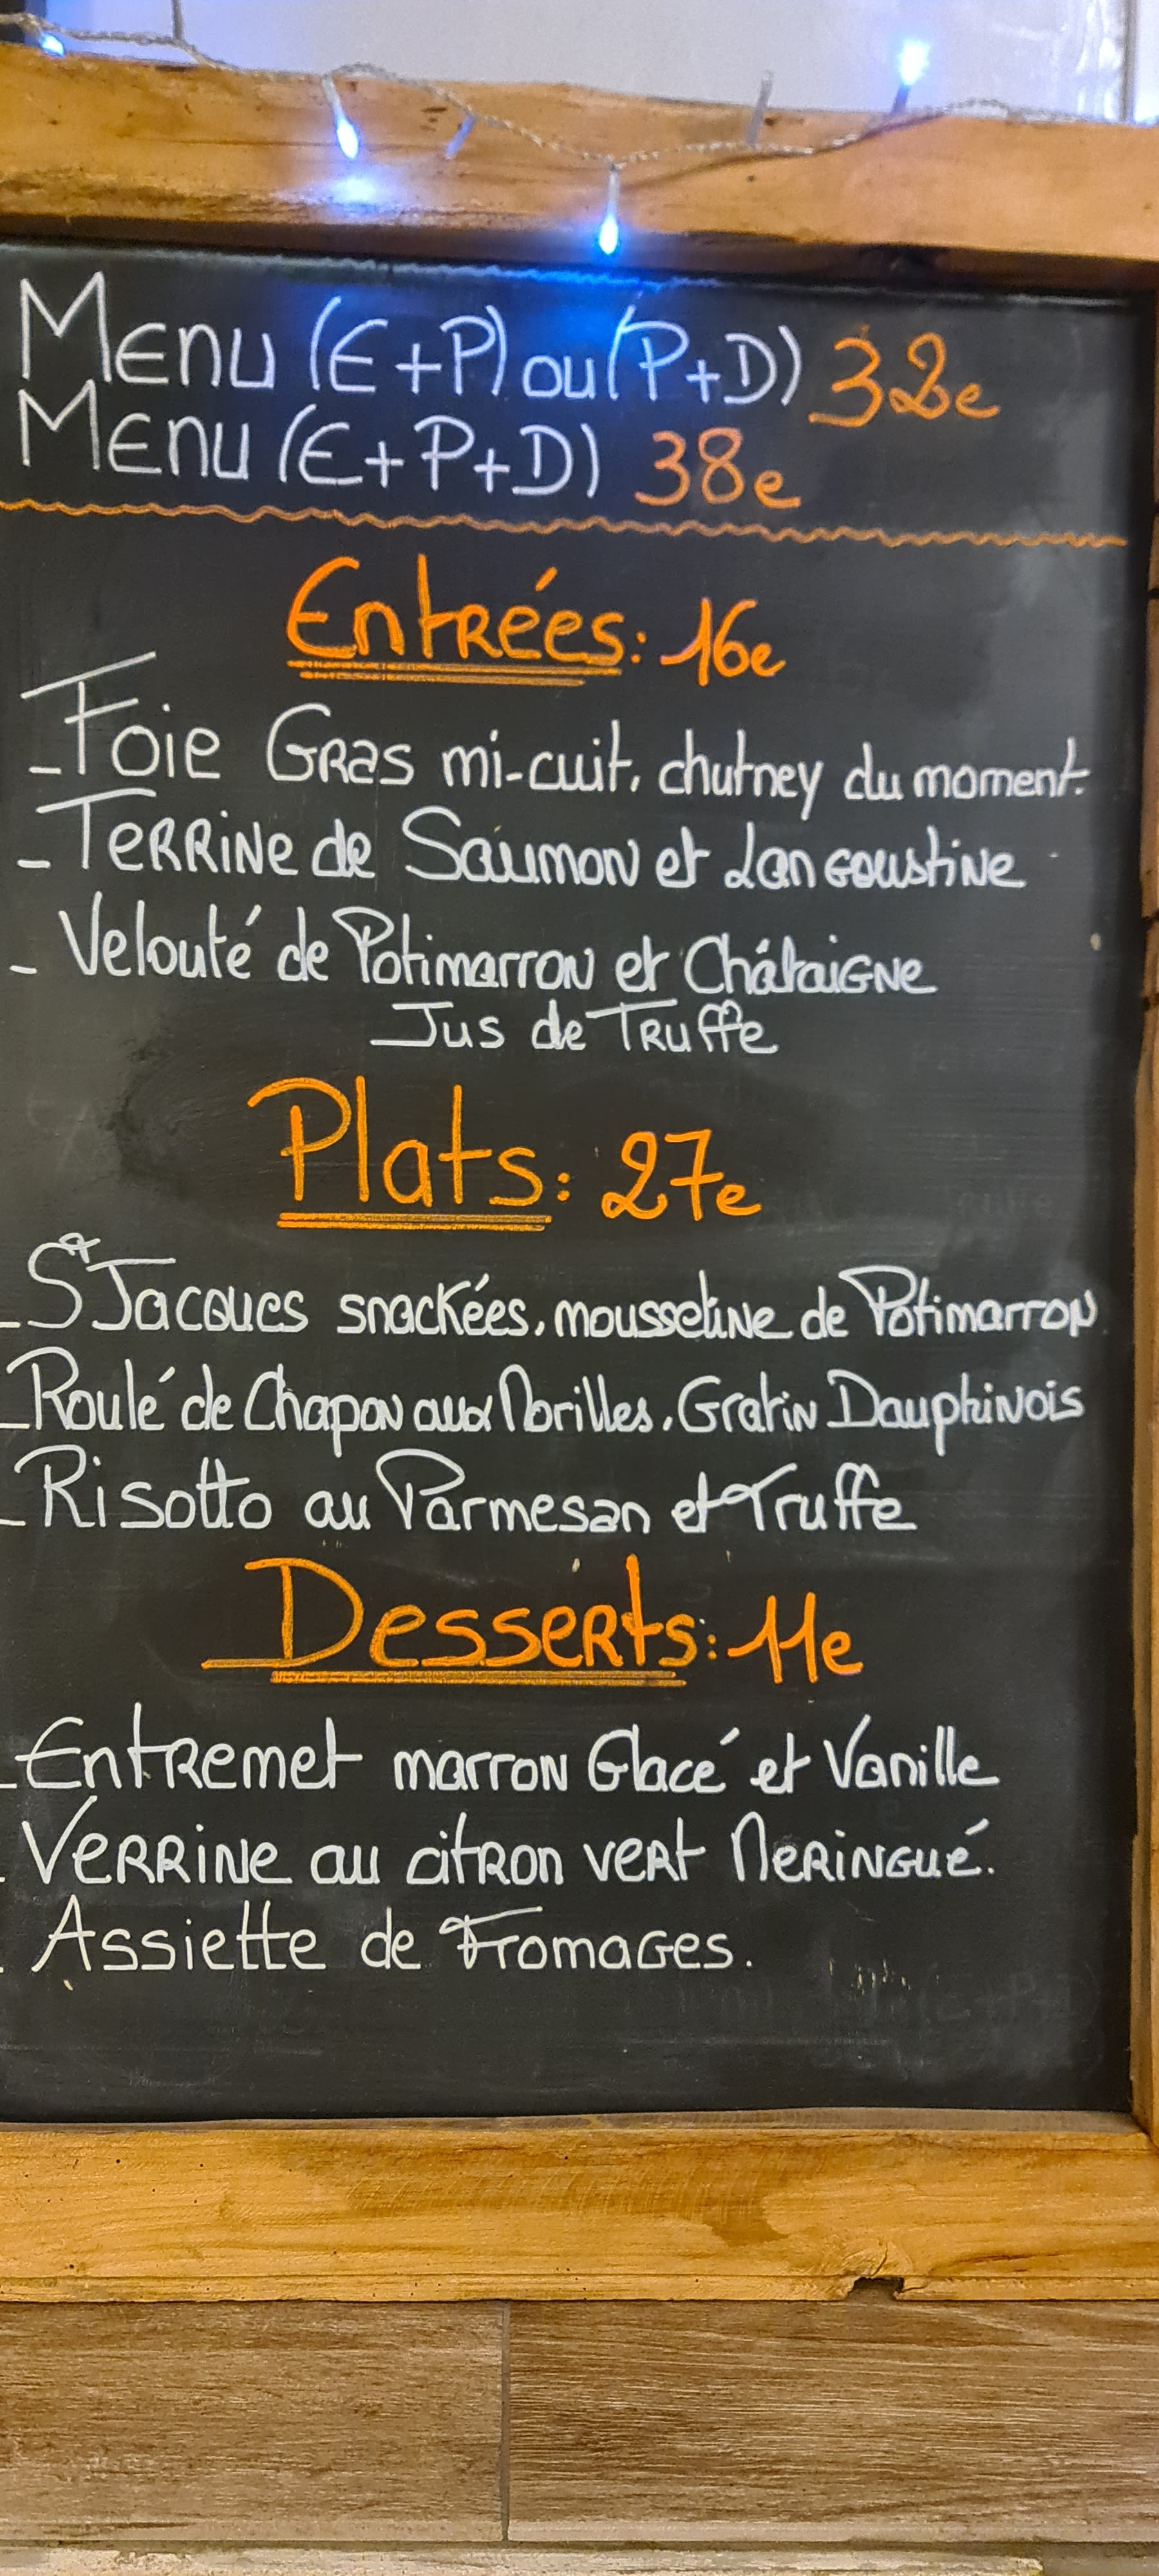 Menu (E+P) ou (P+D) 32e
Menu (E+P+D) 38e
Entrées: 16e
- Foie Gras mi-cuit, chutney du moment.
- Terrine de Saumon et Langoustine
- Velouté de Potimarron et Châtaigne
Jus de Truffe
Plats: 27e
- St Jacques snackées, mousseline de Potimarron
- Roulé de Chapon aux Morilles, Gratin Dauphinois
- Risotto au Parmesan et Truffe
Desserts: 11e
- Entremet marron Glacé et Vanille
- Verrine au citron vert Meringué.
- Assiette de Fromages.